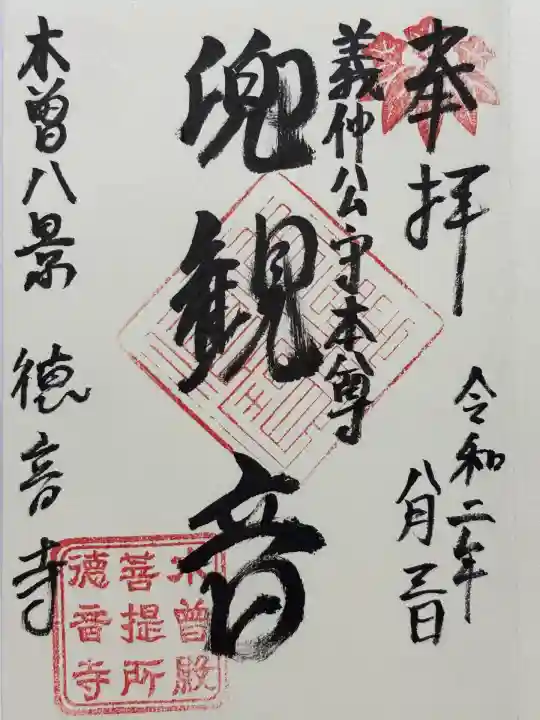 奉拝
令和二年
八月三日
義仲公守本尊
兜観音
木曽八景 徳音寺
木曽殿
菩提所
徳音寺